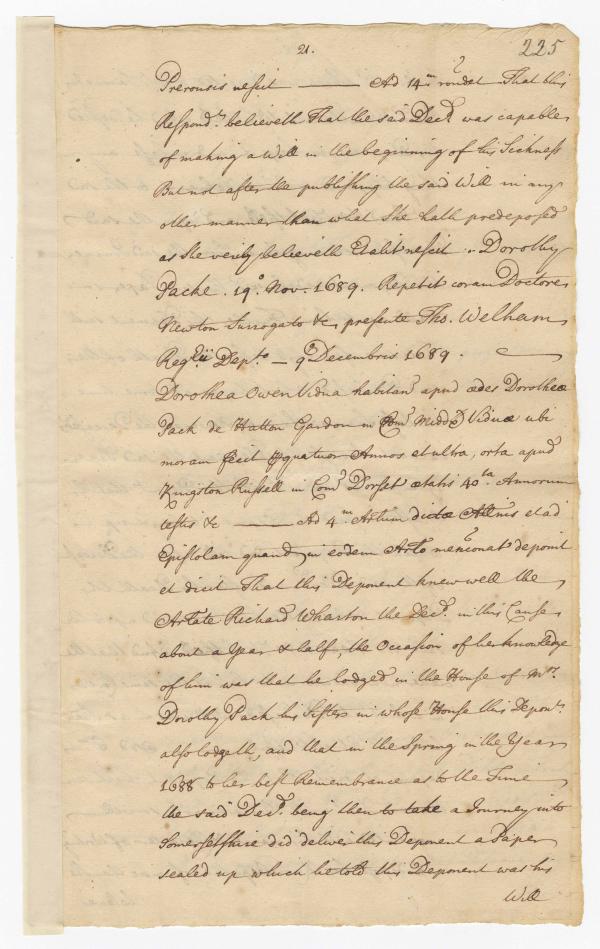 21.
225
nescit — Ad 14m rondet That this
Respondt believeth That the said Decd was capable
of making a Will in the beginning of his Sickness
But not after the publishing the said Will in any
other manner than what She hath predeposed
as She verily believeth Et aliter nescit. Dorothy
Packe. 19o. Nov. 1689. Repetit coram Doctore
Newton Surrogato &c presente Tho. Welham
Regrii Depto — 9o Decembris 1689.
Dorothea Owen Vidua habitans apud ædes Dorotheæ
Pack de Hatton Garden in Com Middx Viduæ ubi
moram fecit per quatuor Annos et ultra, orta apud
Kingston Russell in Com Dorset ætatis 40ta Annorum
testis &c — Ad 4m Artum dictæ Allnis et ad
Epistolam quand in eodem Arto mencionat deponit
et dicit That this Deponent knew well the
Artate Richard Wharton the Decd. in this Cause
about a Year & half, the Occasion of her knowledge
of him was that he lodged in the House of Mrs.
Dorothy Pack his Sister in whose House this Deponts.
also lodgeth, and that in the Spring in the Year
1688 to her best Remembrance as to the Time
the said Decd. being then to take a Journey into
Somersetshire did deliver this Deponent a Paper
sealed up which he told this Deponent was his
Will